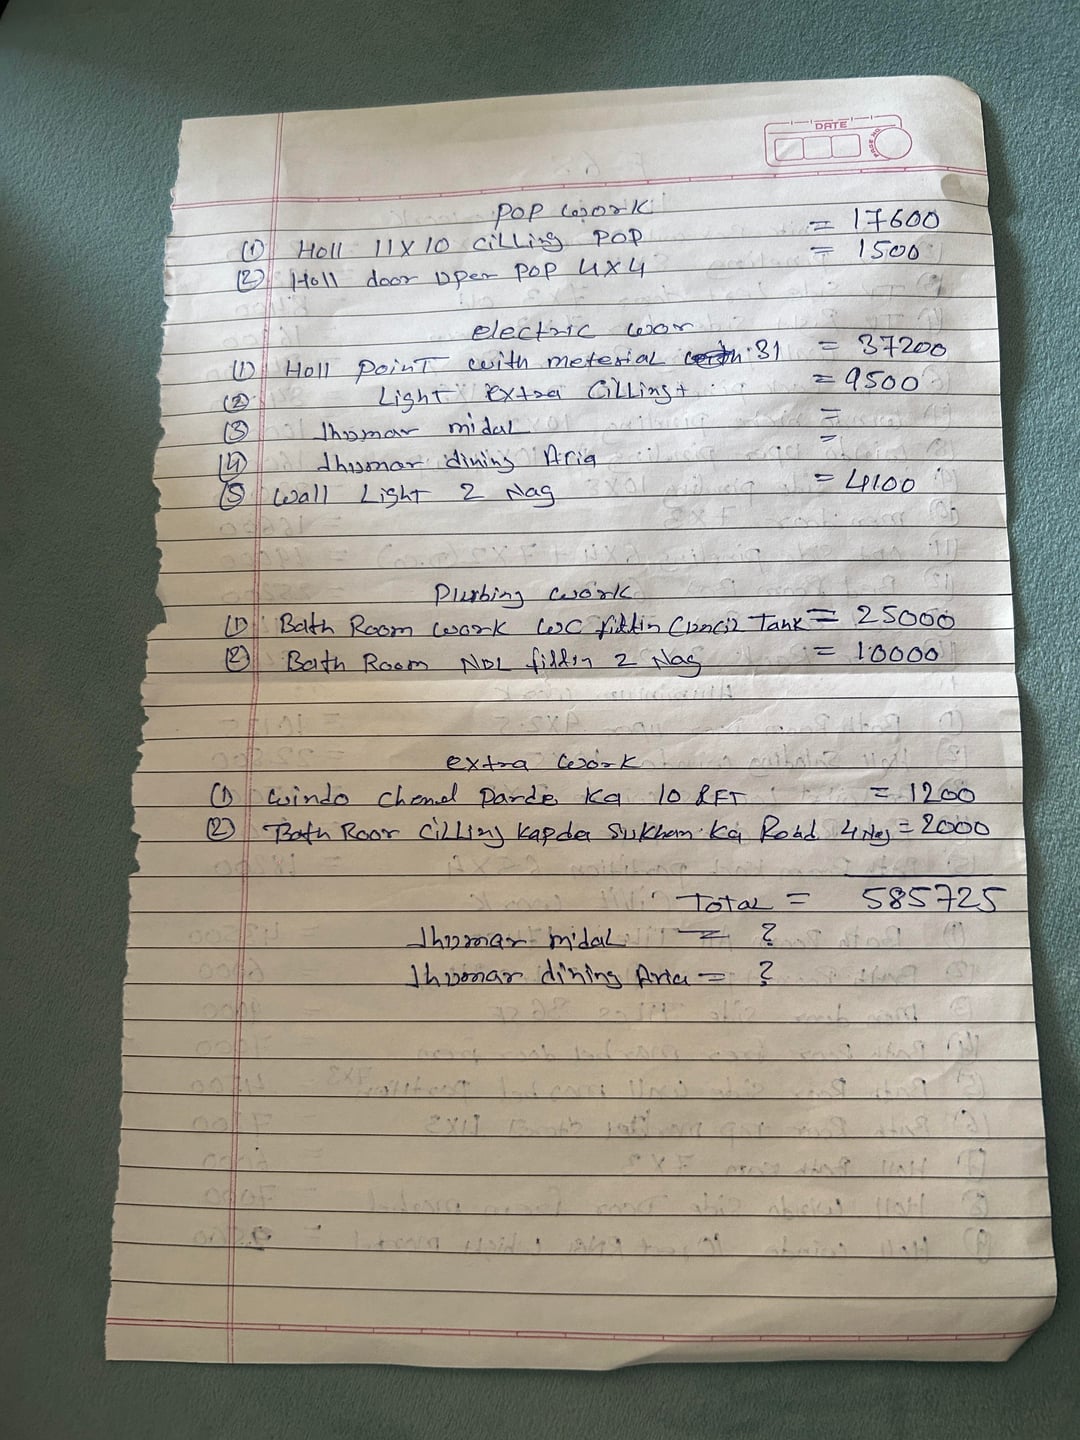 DATE
PAGE NO.
POP work
(1) Holl 11X10 cilling POP = 17600
(2) Holl door Uper POP 4X4 = 1500
electric wor
(1) Holl Point with meterial 31 = 37200
(2) Light extra Cilling + = 9500
(3) Jhumar midal =
(4) Jhumar dining Aria =
(5) Wall Light 2 Nag = 4100
Plurbing work
(1) Bath Room work WC fittin Tank = 25000
(2) Bath Room fittin 2 Nag = 10000
extra work
(1) windo chenel Parde Ka 10 RFT = 1200
(2) Bath Roor Cilling Kapda Sukhan Ka Road 4 Nag = 2000
Total = 585725
Jhumar midal = ?
Jhumar dining Aria = ?